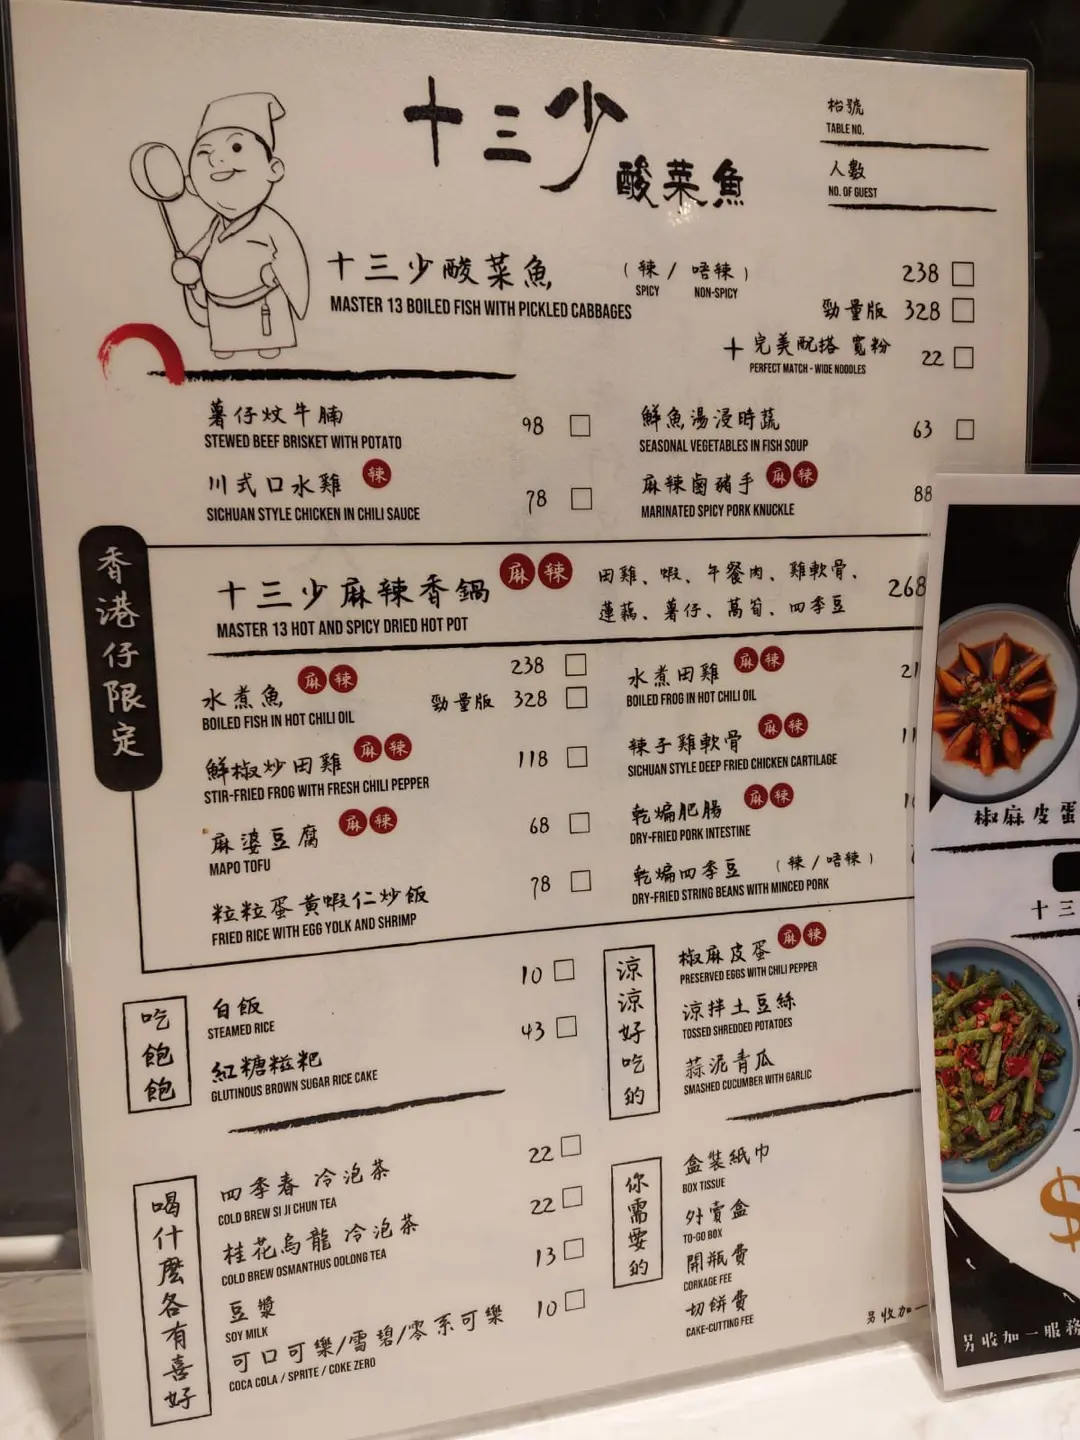 十三少
酸菜魚
枱號
TABLE NO.
人數
NO. OF GUEST
十三少酸菜魚 (辣 / 唔辣) 238
MASTER 13 BOILED FISH WITH PICKLED CABBAGES SPICY NON-SPICY
勁量版 328
+ 完美配搭 寬粉 22
PERFECT MATCH - WIDE NOODLES
薯仔炆牛腩 98
STEWED BEEF BRISKET WITH POTATO
鮮魚湯浸時蔬 63
SEASONAL VEGETABLES IN FISH SOUP
川式口水雞 辣 78
SICHUAN STYLE CHICKEN IN CHILI SAUCE
麻辣鹵豬手 麻辣 88
MARINATED SPICY PORK KNUCKLE
香港仔限定
十三少麻辣香鍋 麻辣
MASTER 13 HOT AND SPICY DRIED HOT POT
田雞、蝦、午餐肉、雞軟骨、 268
蓮藕、薯仔、萵筍、四季豆
水煮魚 麻辣 238
BOILED FISH IN HOT CHILI OIL
勁量版 328
水煮田雞 麻辣
BOILED FROG IN HOT CHILI OIL
鮮椒炒田雞 麻辣 118
STIR-FRIED FROG WITH FRESH CHILI PEPPER
辣子雞軟骨 麻辣
SICHUAN STYLE DEEP FRIED CHICKEN CARTILAGE
麻婆豆腐 麻辣 68
MAPO TOFU
乾煸肥腸 麻辣
DRY-FRIED PORK INTESTINE
粒粒蛋黃蝦仁炒飯 78
FRIED RICE WITH EGG YOLK AND SHRIMP
乾煸四季豆 (辣 / 唔辣)
DRY-FRIED STRING BEANS WITH MINCED PORK
吃飽飽
白飯 10
STEAMED RICE
紅糖糍粑 43
GLUTINOUS BROWN SUGAR RICE CAKE
涼涼好吃的
椒麻皮蛋 麻辣
PRESERVED EGGS WITH CHILI PEPPER
涼拌土豆絲
TOSSED SHREDDED POTATOES
蒜泥青瓜
SMASHED CUCUMBER WITH GARLIC
喝什麼各有喜好
四季春 冷泡茶 22
COLD BREW SI JI CHUN TEA
桂花烏龍 冷泡茶 22
COLD BREW OSMANTHUS OOLONG TEA
豆漿 13
SOY MILK
可口可樂/雪碧/零系可樂 10
COCA COLA / SPRITE / COKE ZERO
你需要的
盒裝紙巾
BOX TISSUE
外賣盒
TO-GO BOX
開瓶費
CORKAGE FEE
切餅費
CAKE-CUTTING FEE
另收加一
椒麻皮蛋
十三
$
另收加一服務